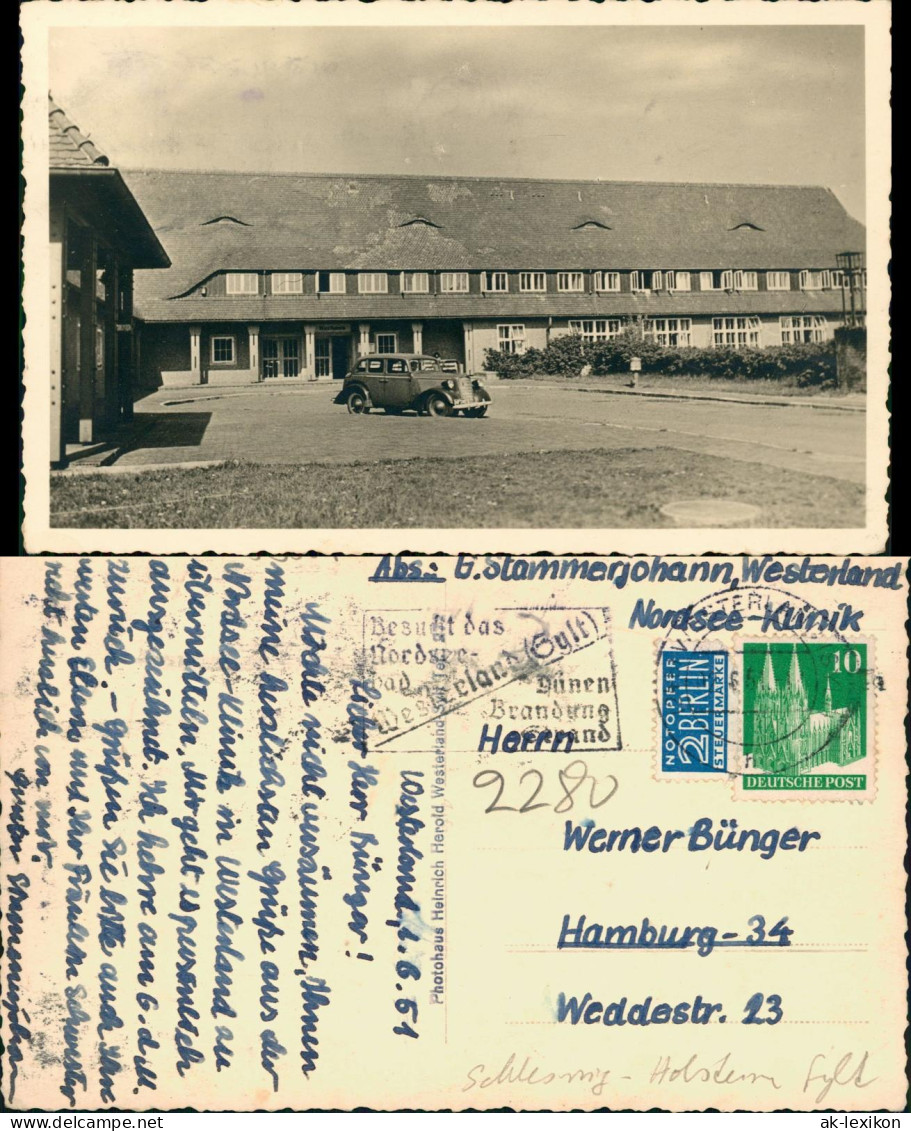 Abs.: G. Stammerjohann, Westerland
Nordsee-Klinik
Besucht das
Nordsee-
bad
Westerland (Sylt)
Dünen
Brandung
Strand
NOTOPFER
2 BERLIN
STEUERMARKE
10
DEUTSCHE POST
Herrn
2280
Werner Bünger
Hamburg-34
Weddestr. 23
Schleswig-Holstein Sylt
Photohaus Heinrich Herold Westerland
Westerland, 2.6.51
Lieber Herr Bünger!
Möchte nicht versäumen, Ihnen
meine herzlichen Grüße aus der
Nordsee-Klinik in Westerland zu
übermitteln. Mir geht es persönlich
ausgezeichnet. Ich kehre am 6. d. M.
zurück. - Grüßen Sie bitte auch Ihre
werten Eltern und Ihr Fräulein Schwester
recht herzlich von mir.
Günter Stammerjohann
ak-lexikon